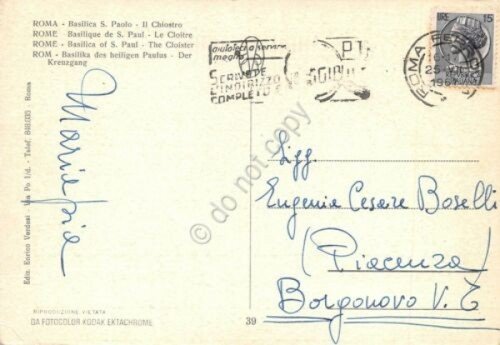 ROMA - Basilica S. Paolo - Il Chiostro
ROME - Basilique de S. Paul - Le Cloître
ROME - Basilica of S. Paul - The Cloister
ROM - Basilika des heiligen Paulus - Der
Kreuzgang
aiutateci a servirvi
meglio
SCRIVETE
L'INDIRIZZO
COMPLETO
ROMA FERROVIA
LIRE 15
Mariapia
Ediz. Enrico Verdesi Via Po 1/d. - Telef. 848.035 - Roma
Sigg.
Eugenia Cesare Boselli
(Piacenza)
Borgonovo V. T
RIPRODUZIONE VIETATA
DA FOTOCOLOR KODAK EKTACHROME
39
© do not copy